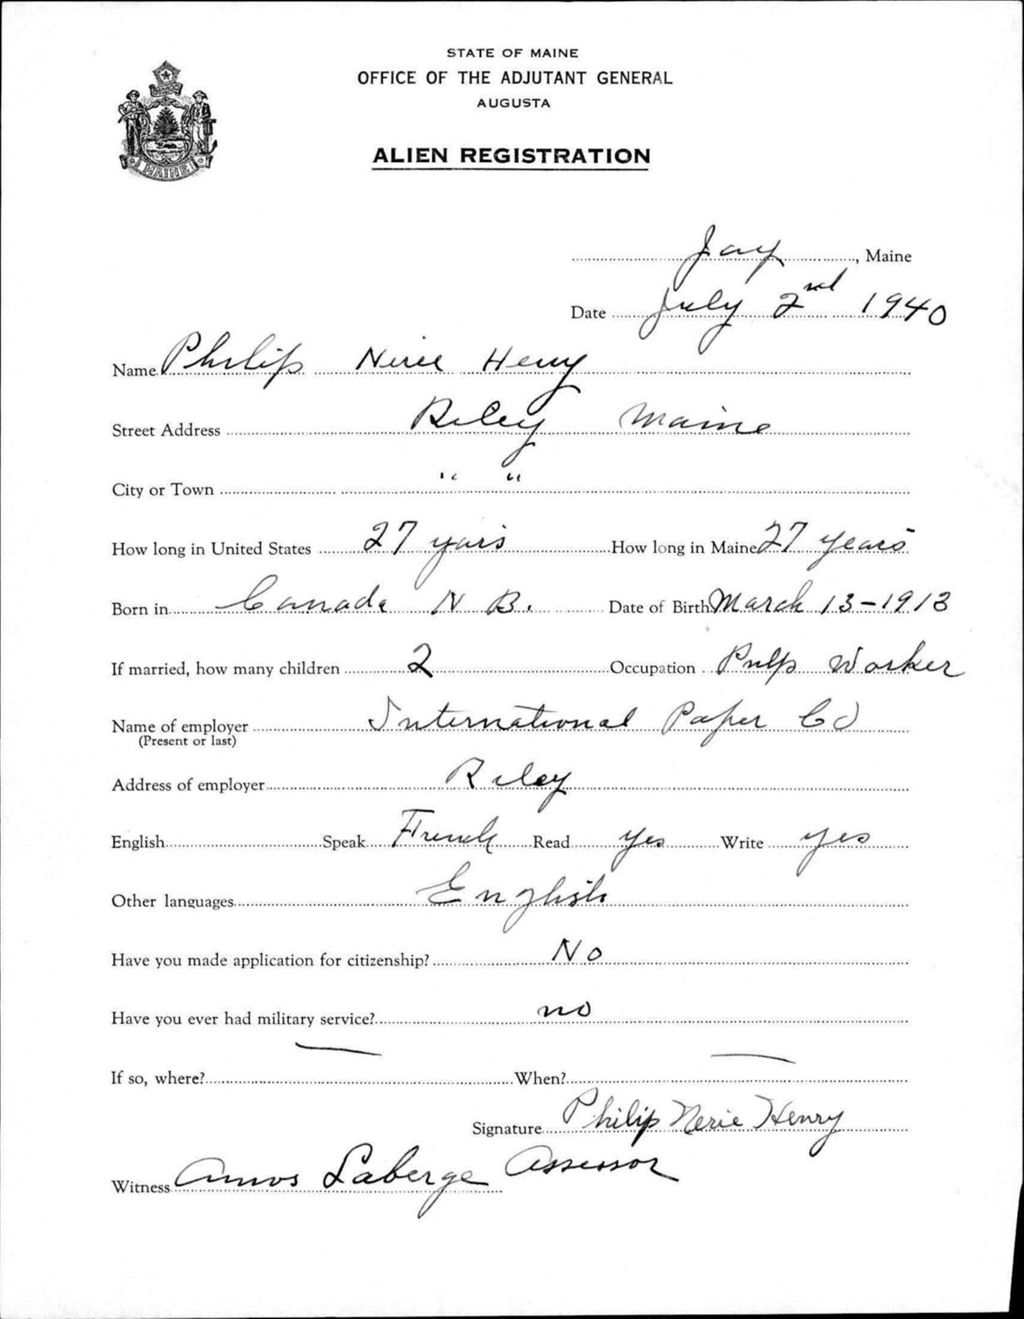 STATE OF MAINE
OFFICE OF THE ADJUTANT GENERAL
AUGUSTA
ALIEN REGISTRATION
MAINE
Jay, Maine
Date July 2nd 1940
Name Philip Nerie Henry
Street Address Riley Maine
City or Town " "
How long in United States 27 years How long in Maine 27 years
Born in Canada N B. Date of Birth March 13-1913
If married, how many children 2 Occupation Pulp Worker
Name of employer International Paper Co
(Present or last)
Address of employer Riley
English Speak French Read yes Write yes
Other languages English
Have you made application for citizenship? No
Have you ever had military service? no
If so, where? — When? —
Signature Philip Nerie Henry
Witness Amos Laberge Assessor